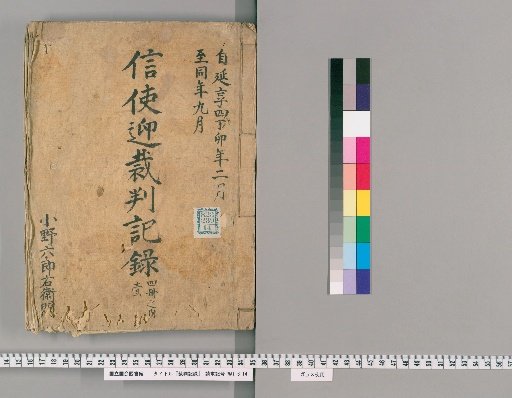 自延享四丁卯年二月
至同年九月
信使迎裁判記録
四冊之内
壱
小野六郎右衛門